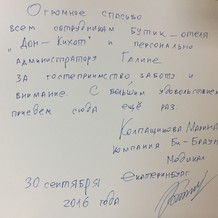 Огромное спасибо
всем сотрудникам бутик-отеля
"Дон-Кихот" и персонально
администратору Галине
за гостеприимство заботу и
внимание. С большим удовольствием
приедем сюда ещё раз.
Колпащикова Марина
компания Би-Браун
Медикал
Екатеринбург
30 сентября
2016 года